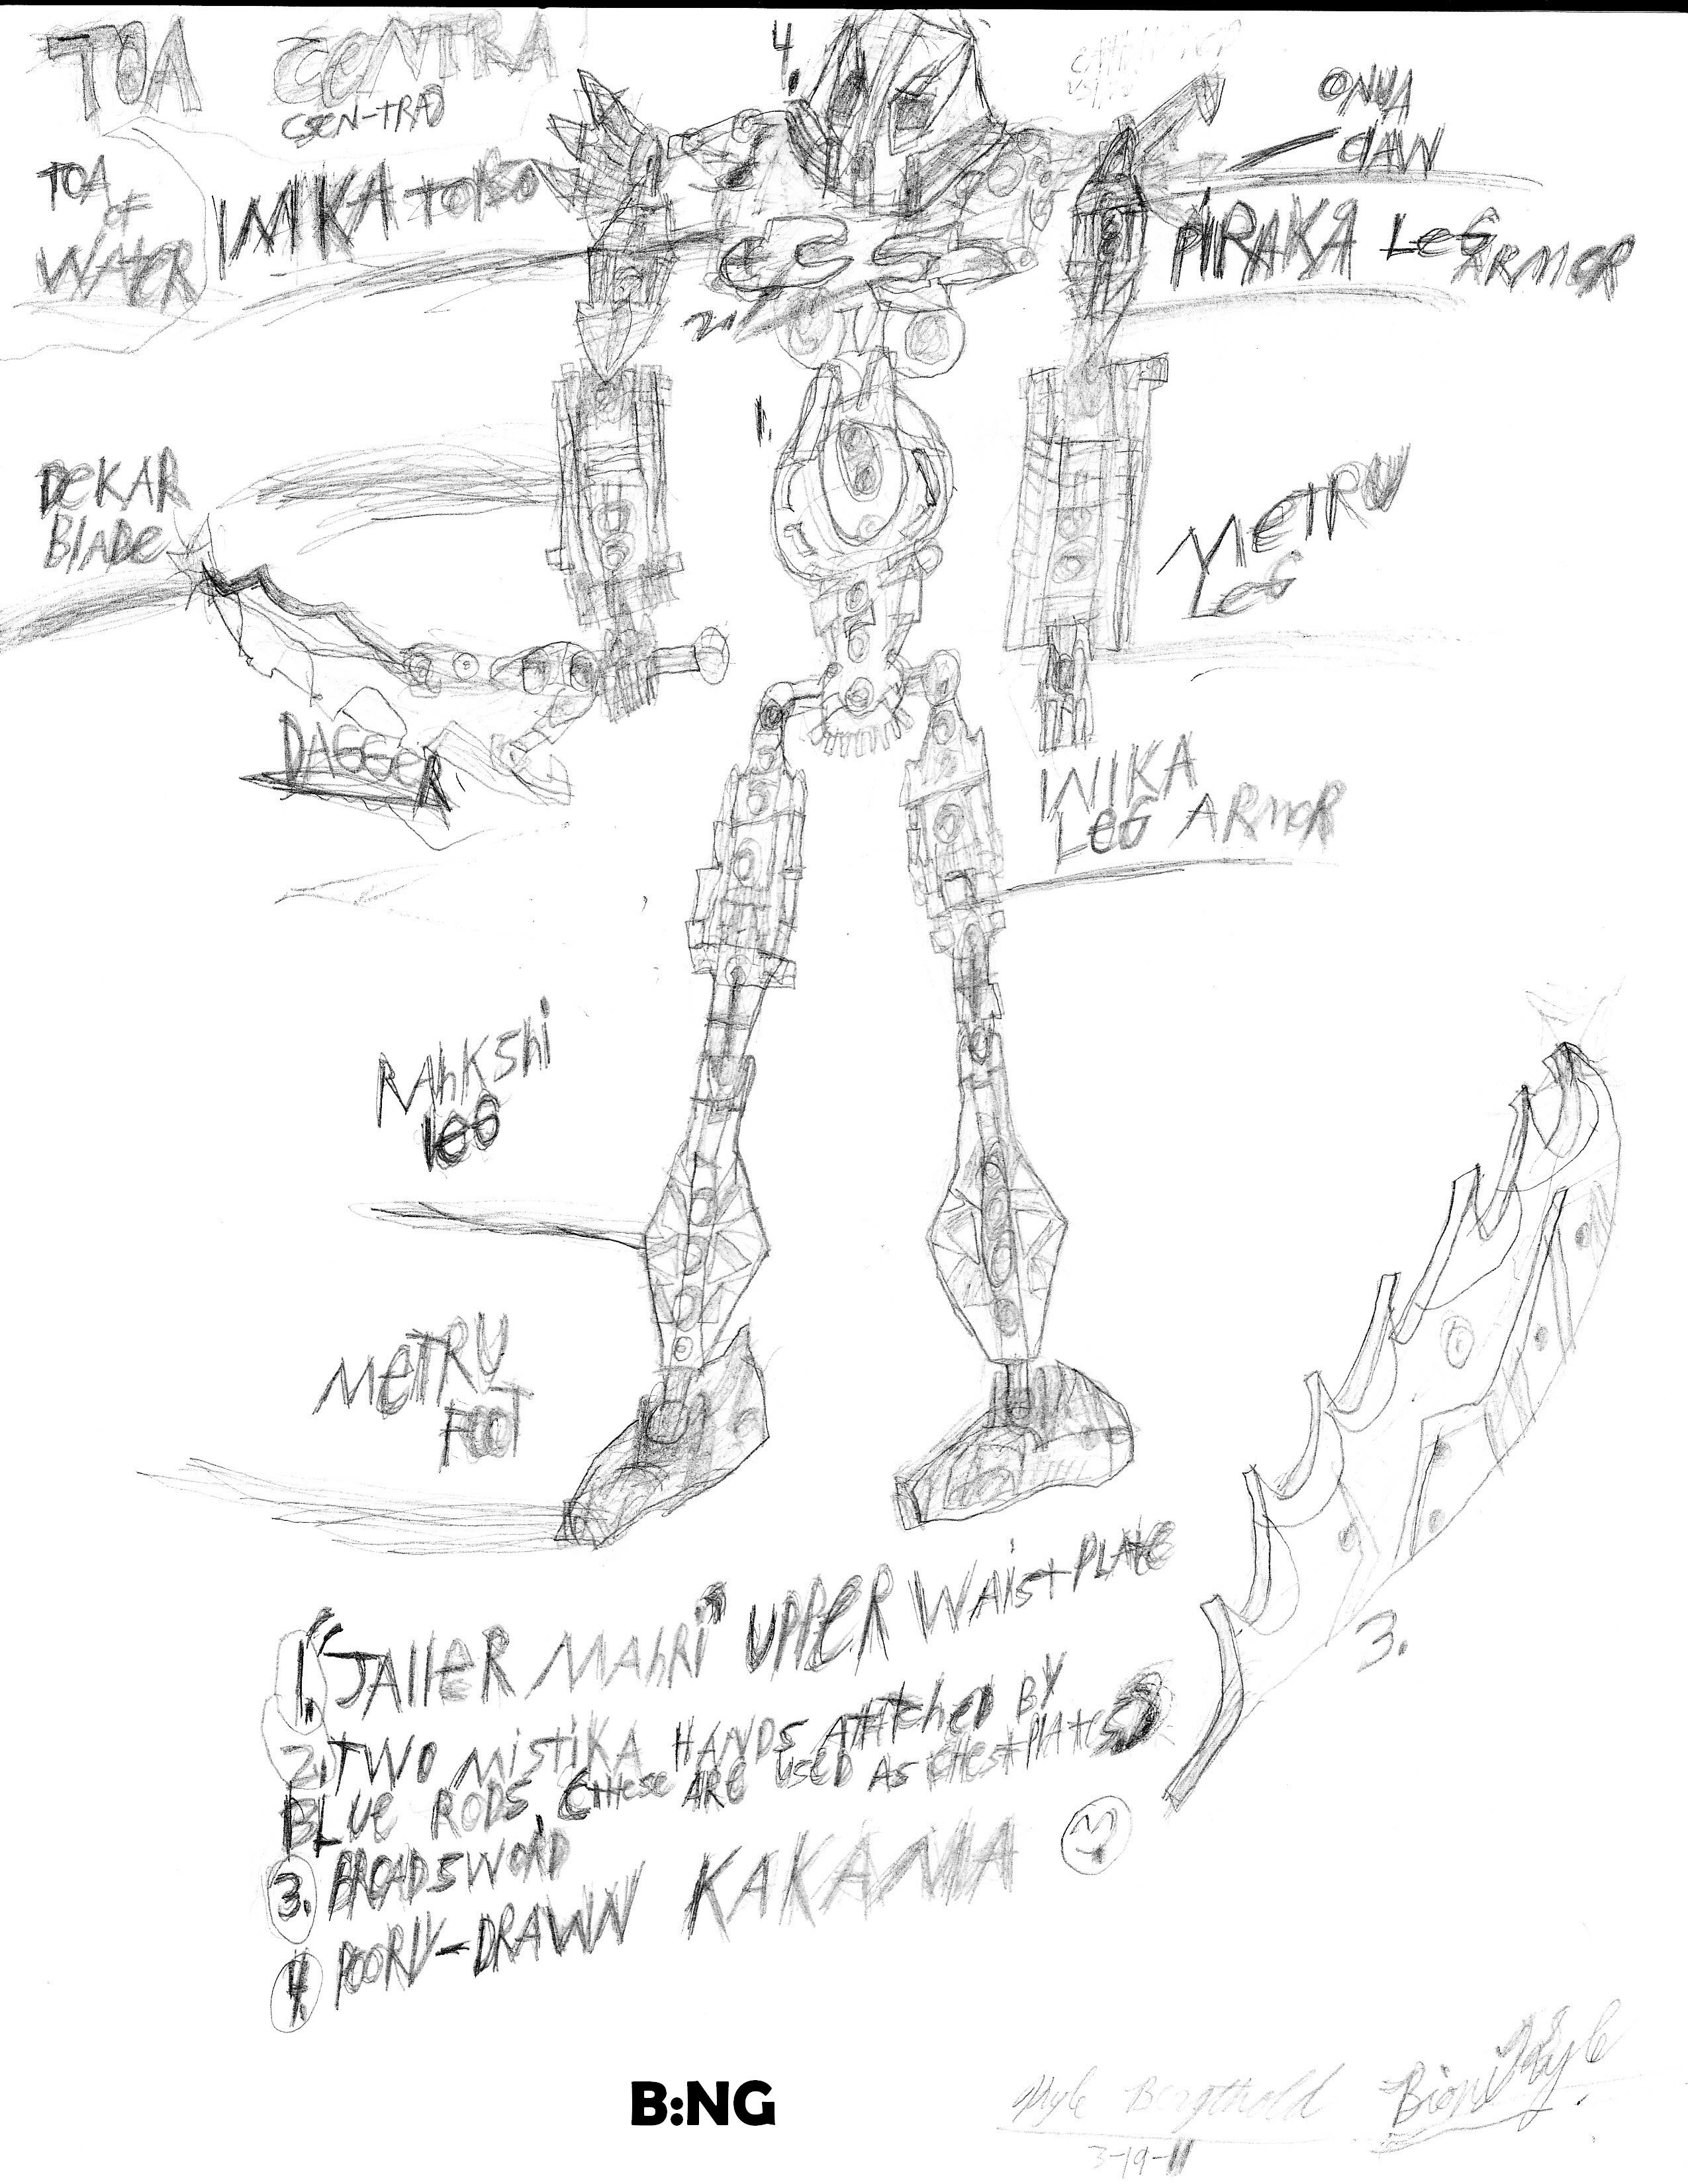 TOA CENTRA
4.
(SEN-TRA)
ONUA
CLAW
TOA
OF
WATER
INIKA TORSO
PIRAKA LEG
ARMOR
2.
1.
DEKAR
BLADE
METRU
LEG
DAGGER
INIKA
LEG ARMOR
RAhKShi
leG
METRU
FOOT
3.
1. "JAllER MAhRi" UPPER WAist PLAtE
2. TWO MiStiKA HANDS AttAtchED BY
BLUe RODS, (these ARe USED AS ChEStPlAtES)
3. BROADSWORD
4. POORlY-DRAWN KAKAMA
B:NG
Kyle Bergthold BioniKyle
3-19-11